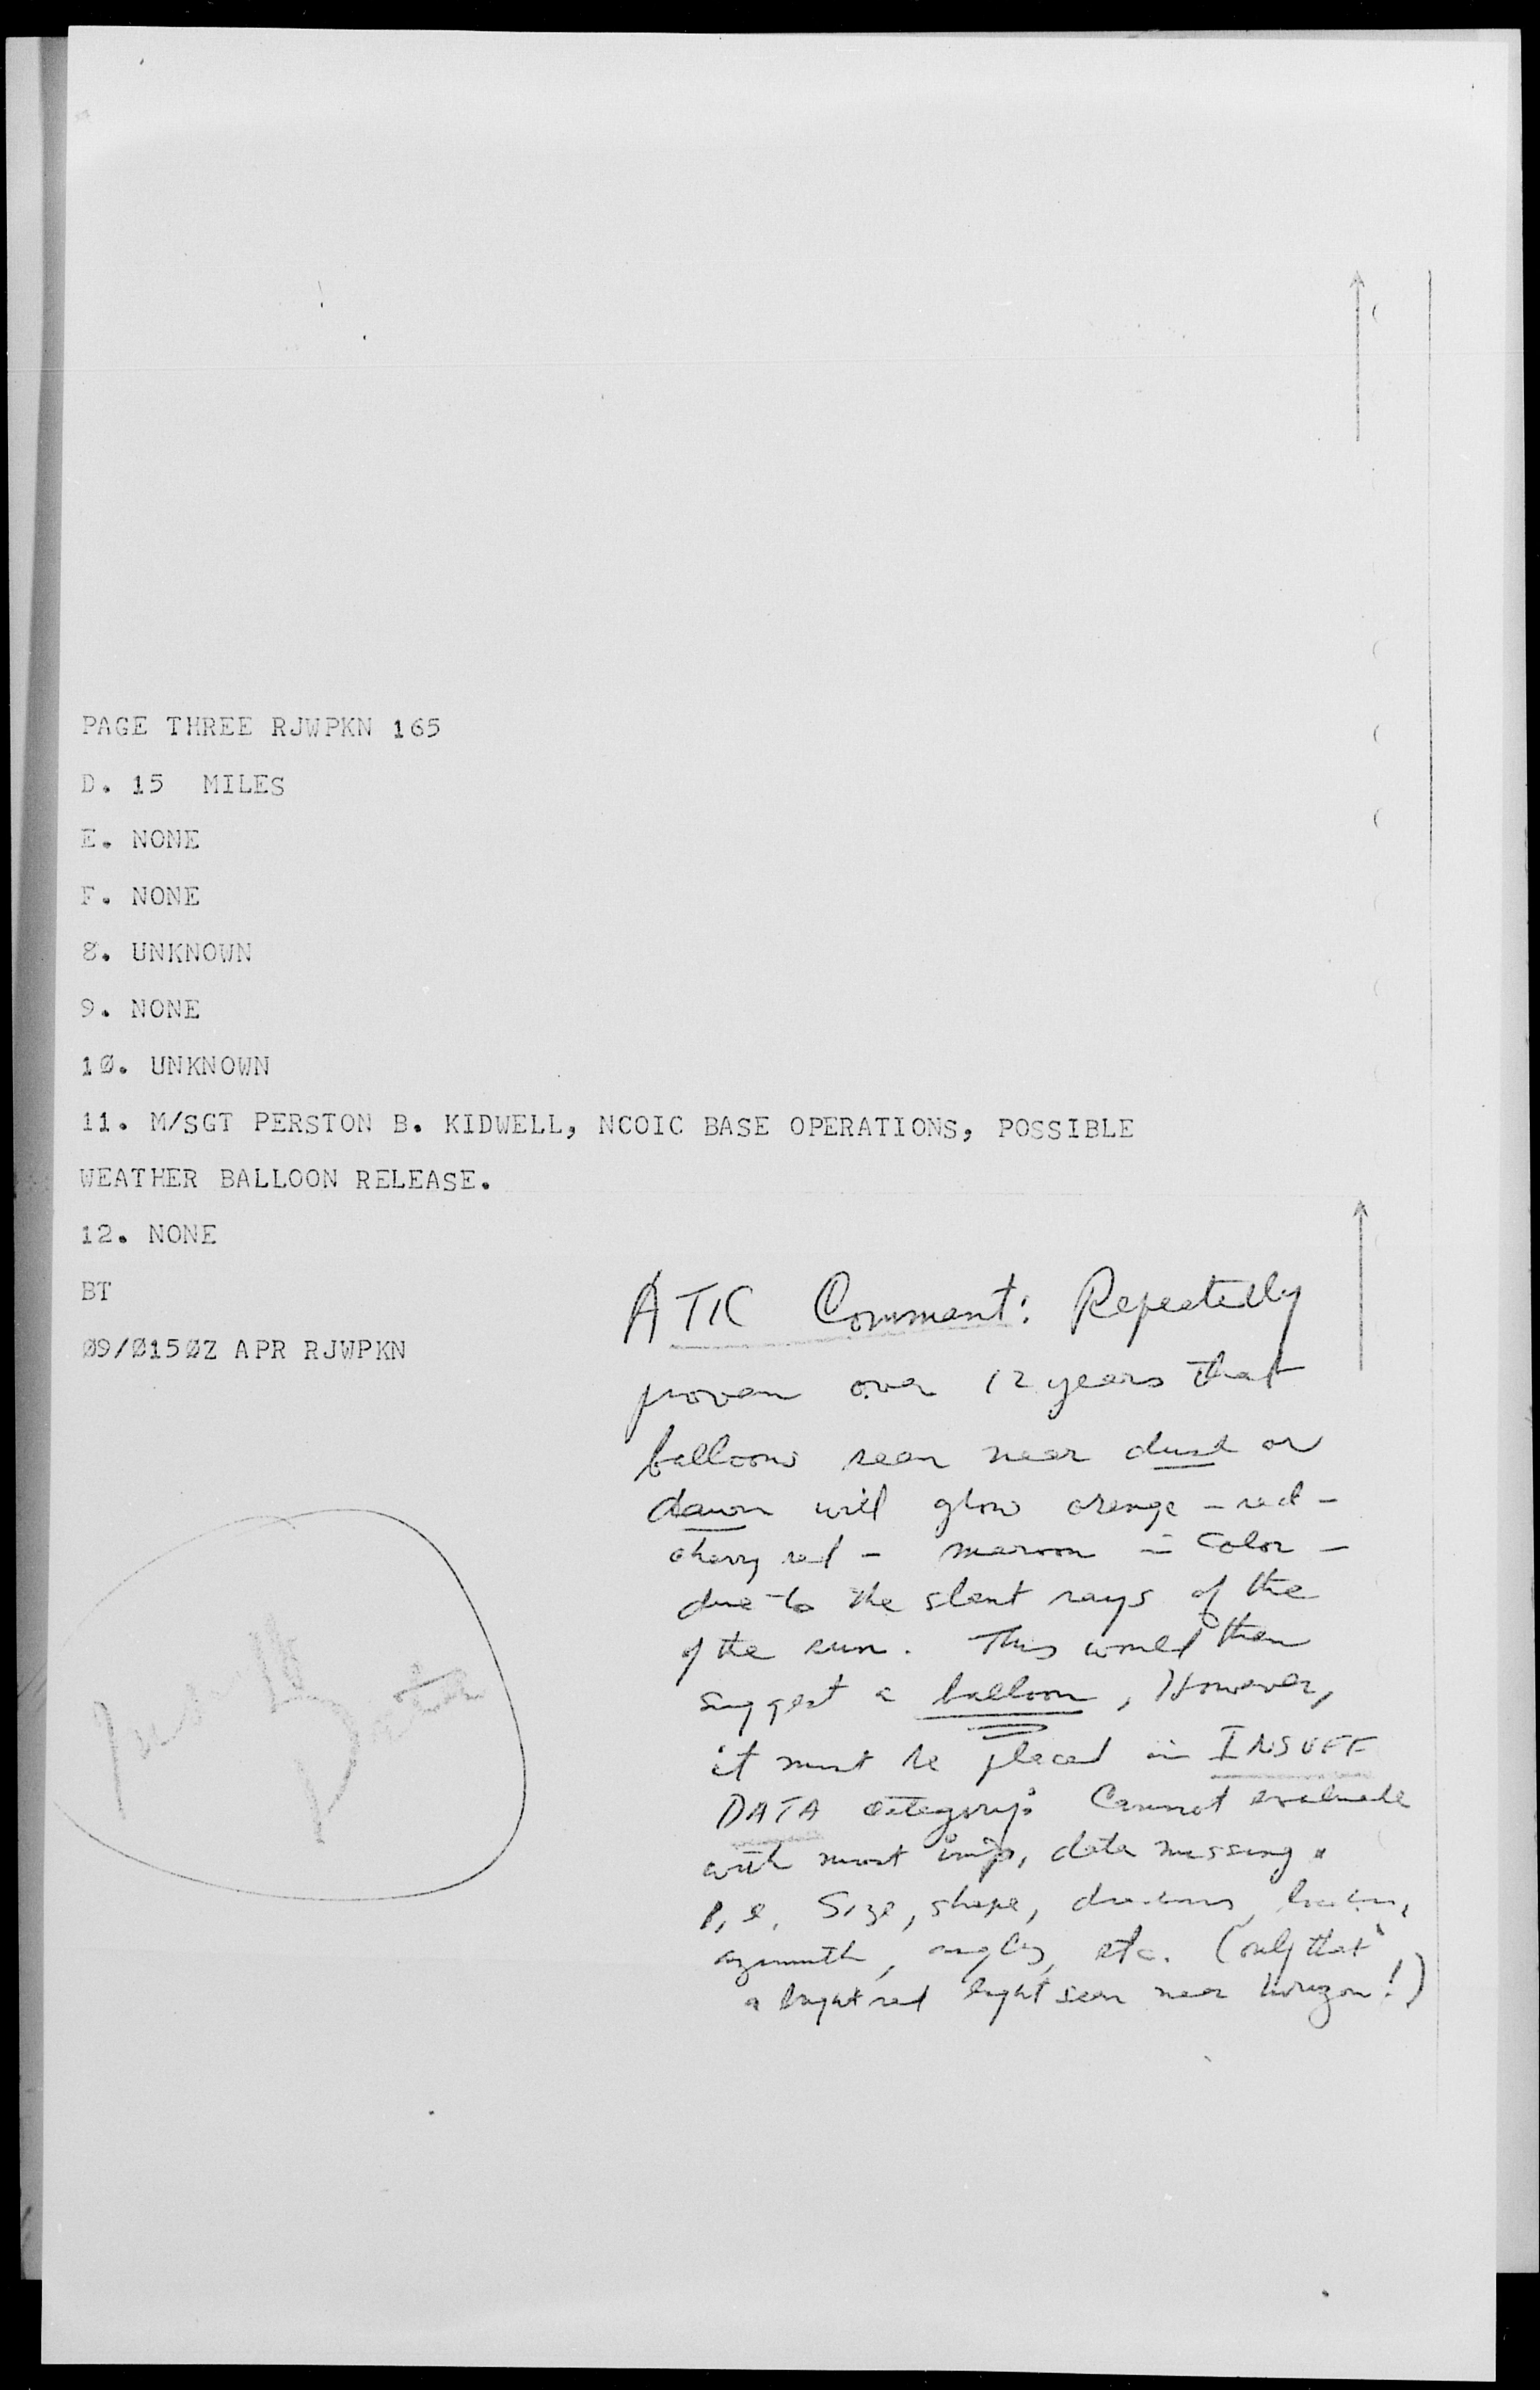 PAGE THREE RJWPKN 165
D. 15 MILES
E. NONE
F. NONE
8. UNKNOWN
9. NONE
1Ø. UNKNOWN
11. M/SGT PERSTON B. KIDWELL, NCOIC BASE OPERATIONS, POSSIBLE
WEATHER BALLOON RELEASE.
12. NONE
BT
Ø9/Ø15ØZ APR RJWPKN
ATIC Comment: Repeatedly
proven over 12 years that
balloons seen near dusk or
dawn will glow orange - red -
cherry red - maroon in color -
due to the slant rays of the
of the sun. This would then
suggest a balloon, However,
it must be placed in INSUFF
DATA category: Cannot evaluate
with most imp, data missing.
i.e. Size, shape,
azimuth, angles, etc. (only that
a bright red light seen near horizon!)
Insuff
Data